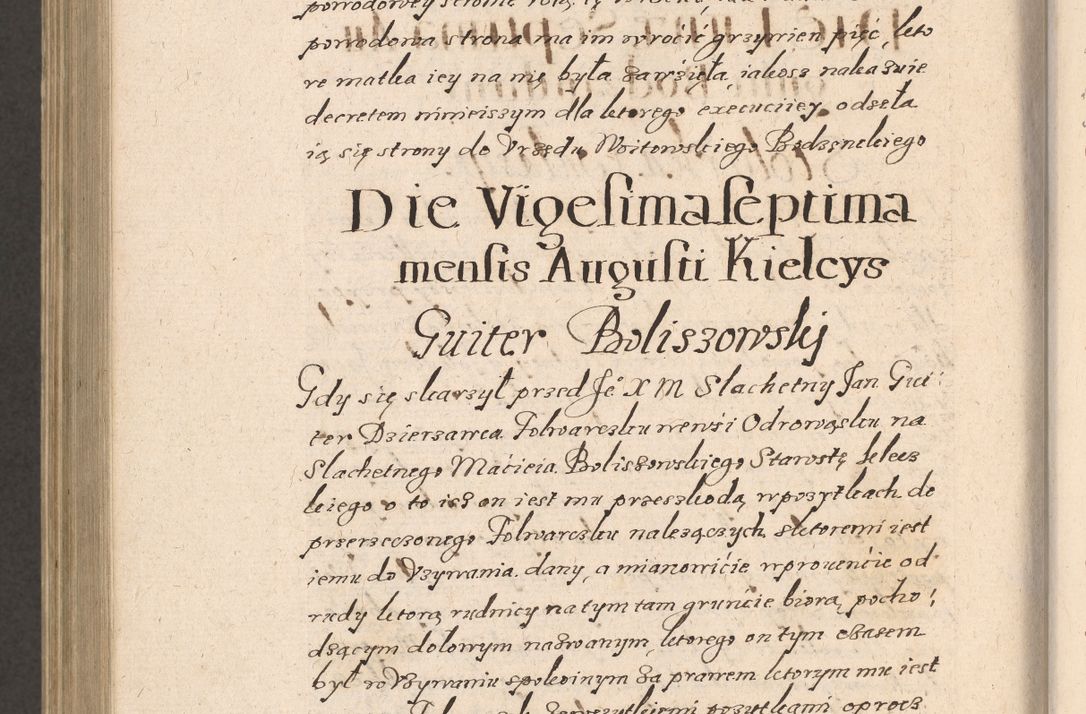 powodowa strona ma im wrócić grzywien pięć, kto
re matka iey na nię była zawzięła iakosz nakazuie
decretem ninieiszym dla ktorego execuciiey odseła
ią się strony do Vrzędu Woitowskiego Bodzęnckiego
Die Vigesimaseptima
mensis Augusti Kielcys
Guiter Boliszowskj
Gdy się skarzył przed Je X M Slachetny Jan Gui
ter Dzierzawca Folwarczku wewsi Odrowąsku na
Slachetnego Macieia Boliszowskiego Starostę kelecz
kiego o to isz on iest mu przeszkodą wpozytkach do
przerzeczonego Folwarczku nalezączych sktoremi iest
iemu do Vzywania dany, a mianowićie wprouenćie od
rudy ktorą rudnicy na tym tam grunćie biorą, pocho
dzącym dolowym nazwanym, ktorego on tym czasem
był w Vzywaniu spokoinym za prawem ktorym mu iest
pozytkami oprocz